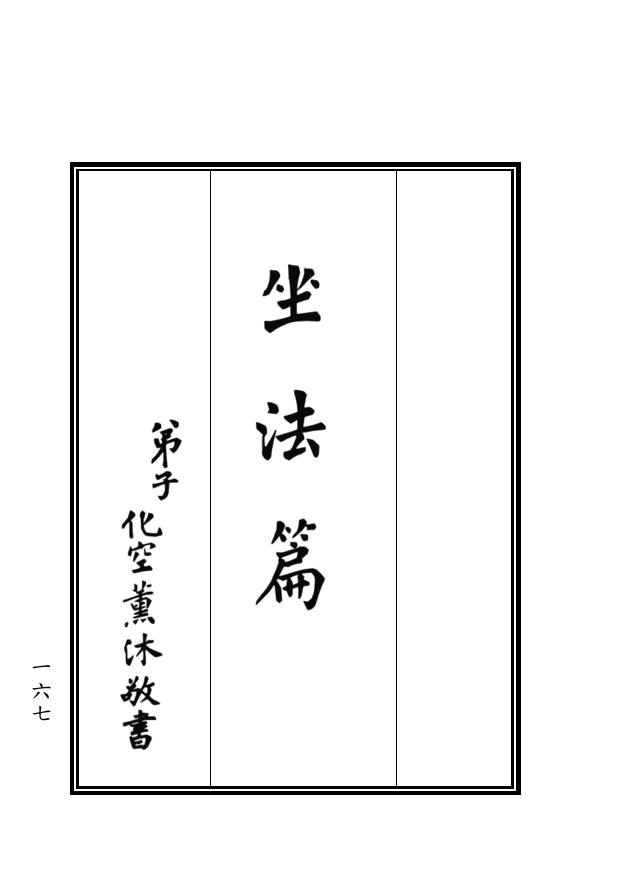 坐法篇
弟子化空薰沐敬書
一六七